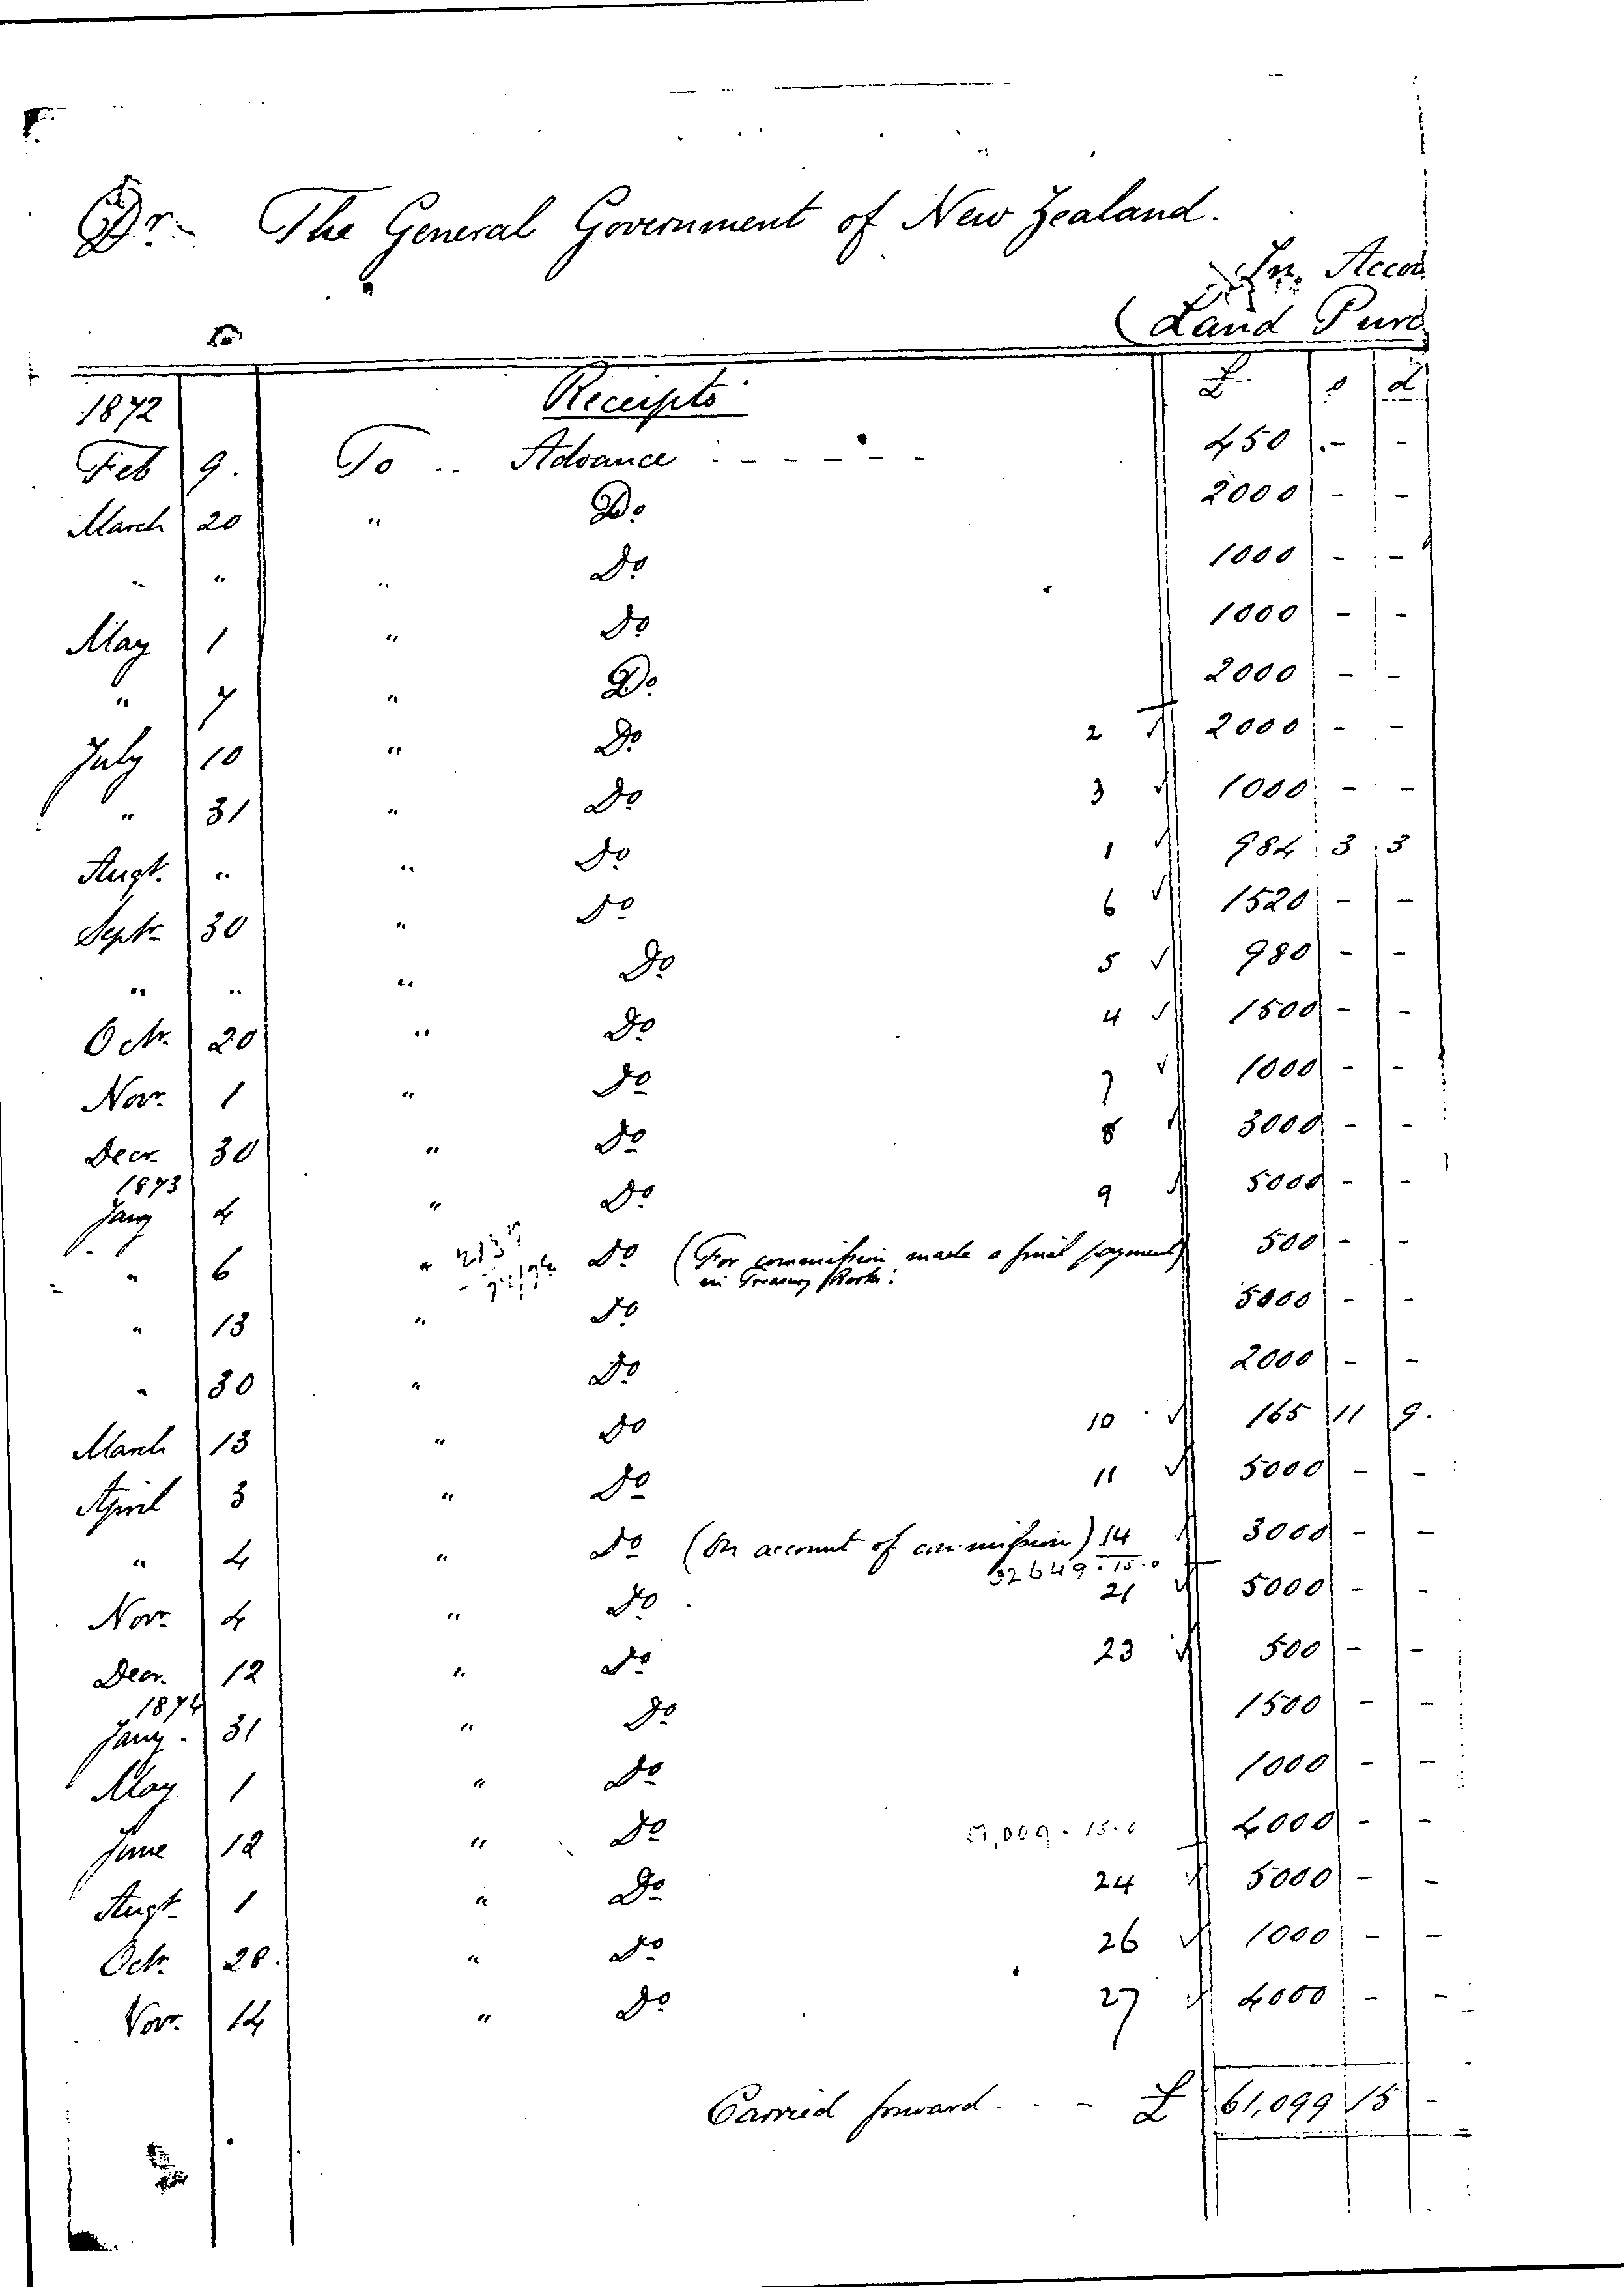 Dr. The General Government of New Zealand.
In Accou
(Land Purc
Receipts £ s d
1872
Feb 9. To .. Advance - - - - - - 450 - -
March 20 " Do 2000 - -
" " " Do 1000 - -
May 1 " Do 1000 - -
" 7 " Do 2000 - -
July 10 " Do 2 ✓ 2000 - -
" 31 " Do 3 ✓ 1000 - -
Augt. " " Do 1 ✓ 984 3 3
Septr 30 " Do 6 ✓ 1520 - -
" " " Do 5 ✓ 980 - -
Octr. 20 " Do 4 ✓ 1500 - -
Novr. 1 " Do 7 ✓ 1000 - -
Decr. 30 " Do 8 ✓ 3000 - -
1873
Jany 4 " Do 9 ✓ 5000 - -
" 6 " Do (For commission made a final payment) 500 - -
in Treasury Books.
" 13 " Do 5000 - -
" 30 " Do 2000 - -
March 13 " Do 10 ✓ 165 11 9.
April 3 " Do 11 ✓ 5000 - -
" 4 " Do (On account of commission) 14 ✓ 3000 - -
32649.15.0
Novr. 4 " Do 21 ✓ 5000 - -
Decr. 12 " Do 23 ✓ 500 - -
1874
Jany. 31 " Do 1500 - -
May 1 " Do 1000 - -
June 12 " Do 4000 - -
Augt. 1 " Do 24 ✓ 5000 - -
Octr. 28. " Do 26 ✓ 1000 - -
Novr. 14 " Do 27 ✓ 4000 - -
Carried forward. - - £ 61,099 15 -